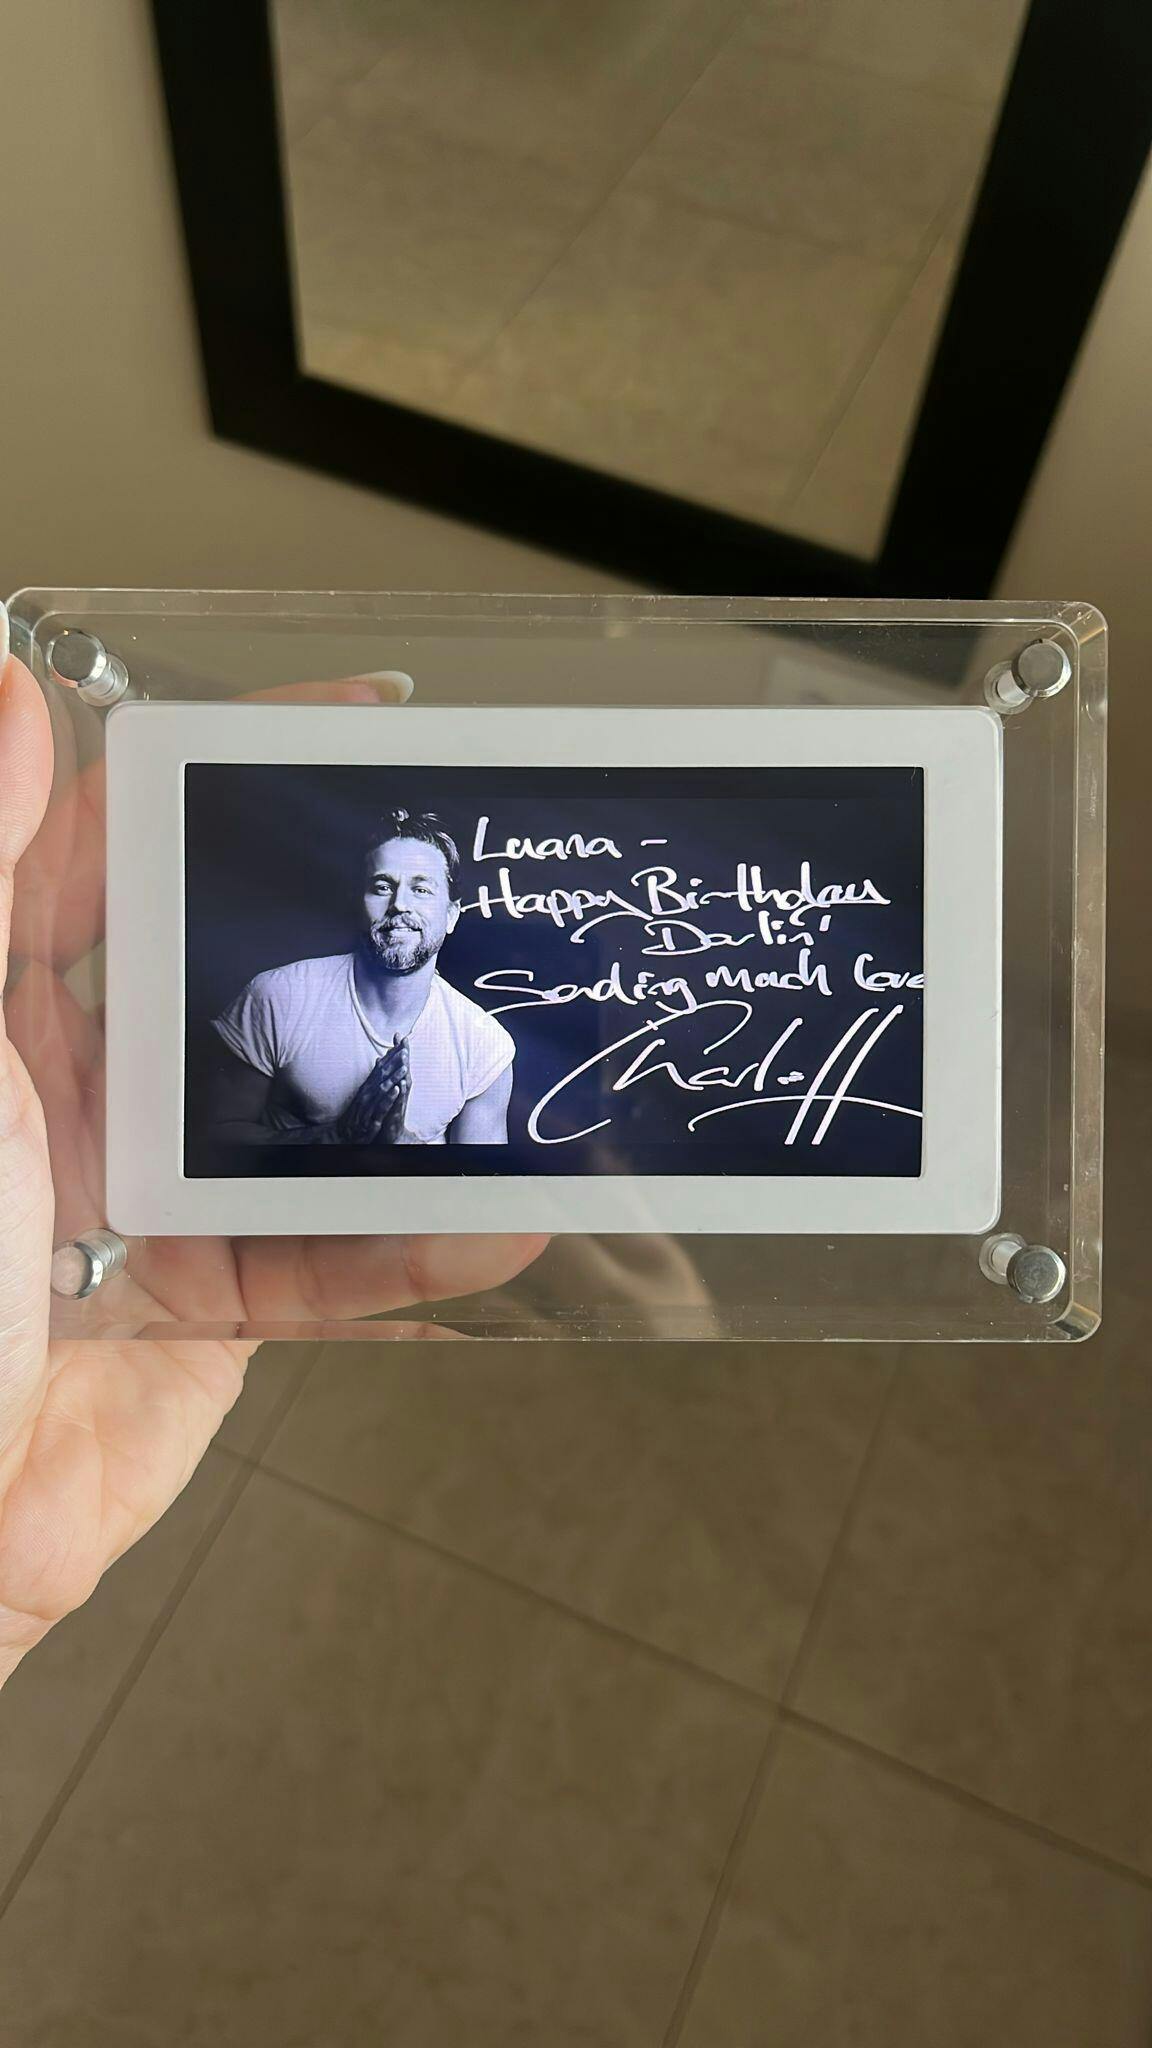 Luana -
Happy Birthday
Darlin'
Sending much love